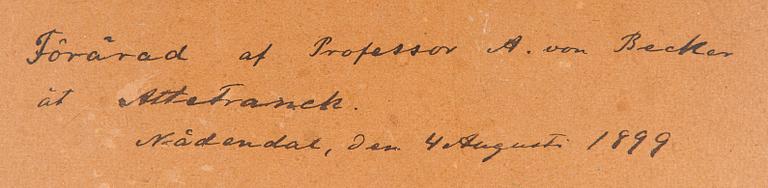 Förärad af Professor A. von Becker
åt Atte Franck.
Nådendal, den 4 Augusti 1899